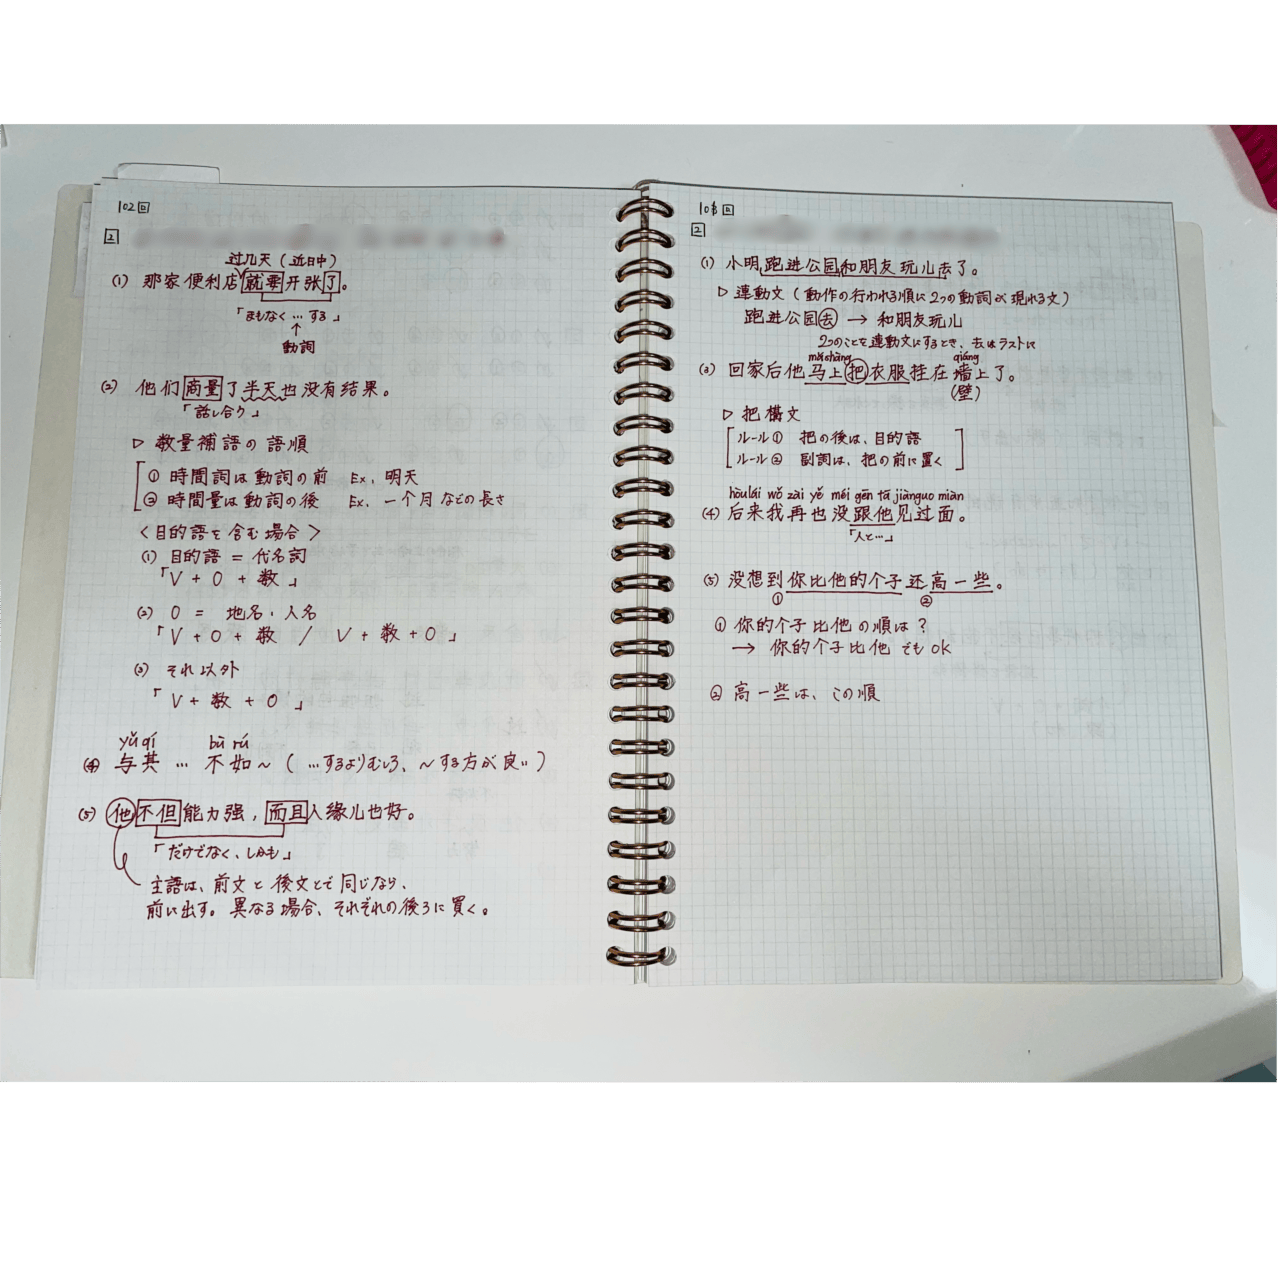 102回
2
过几天（近日中）
(1) 那家便利店就要开张了。
「まもなく…する」
↑
動詞
(2) 他们商量了半天也没有结果。
「話し合う」
▷ 数量補語の語順
① 時間詞は動詞の前 Ex. 明天
② 時間量は動詞の後 Ex. 一个月などの長さ
<目的語を含む場合>
(1) 目的語 = 代名詞
「V + O + 数」
(2) O = 地名・人名
「V + O + 数 / V + 数 + O」
(3) それ以外
「V + 数 + O」
yǔ qí bù rú
(4) 与其 … 不如～(…するよりむしろ、～する方が良い)
(5) 他不但能力强，而且人缘儿也好。
「だけでなく、しかも」
主語は、前文と後文とで同じなら、
前に出す。異なる場合、それぞれの後ろに置く。
103回
2
(1) 小明跑进公园和朋友玩儿去了。
▷ 連動文（動作の行われる順に2つの動詞が現れる文）
跑进公园去 → 和朋友玩儿
2つのことを連動文にするとき、去はラストに
mǎshàng qiáng
(3) 回家后他马上把衣服挂在墙上了。
(壁)
▷ 把構文
ルール① 把の後は、目的語
ルール② 副詞は、把の前に置く
hòulái wǒ zài yě méi gēn tā jiànguo miàn
(4) 后来我再也没跟他见过面。
「人と…」
(5) 没想到你比他的个子还高一些。
① ②
① 你的个子比他の順は？
→ 你的个子比他 でもOK
② 高一些は、この順